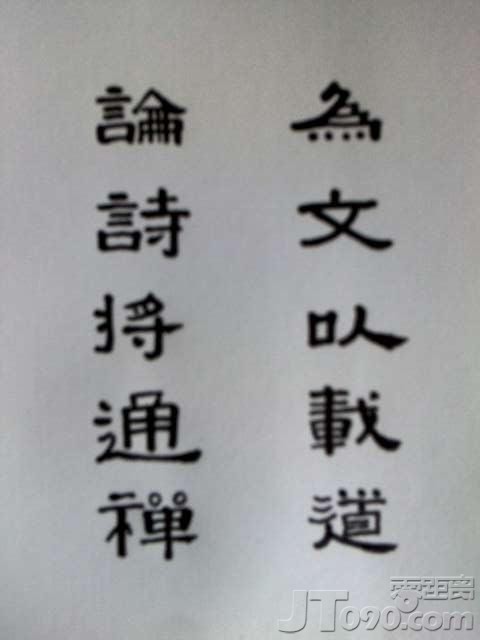 為文以載道
論詩将通禅
JT090.com